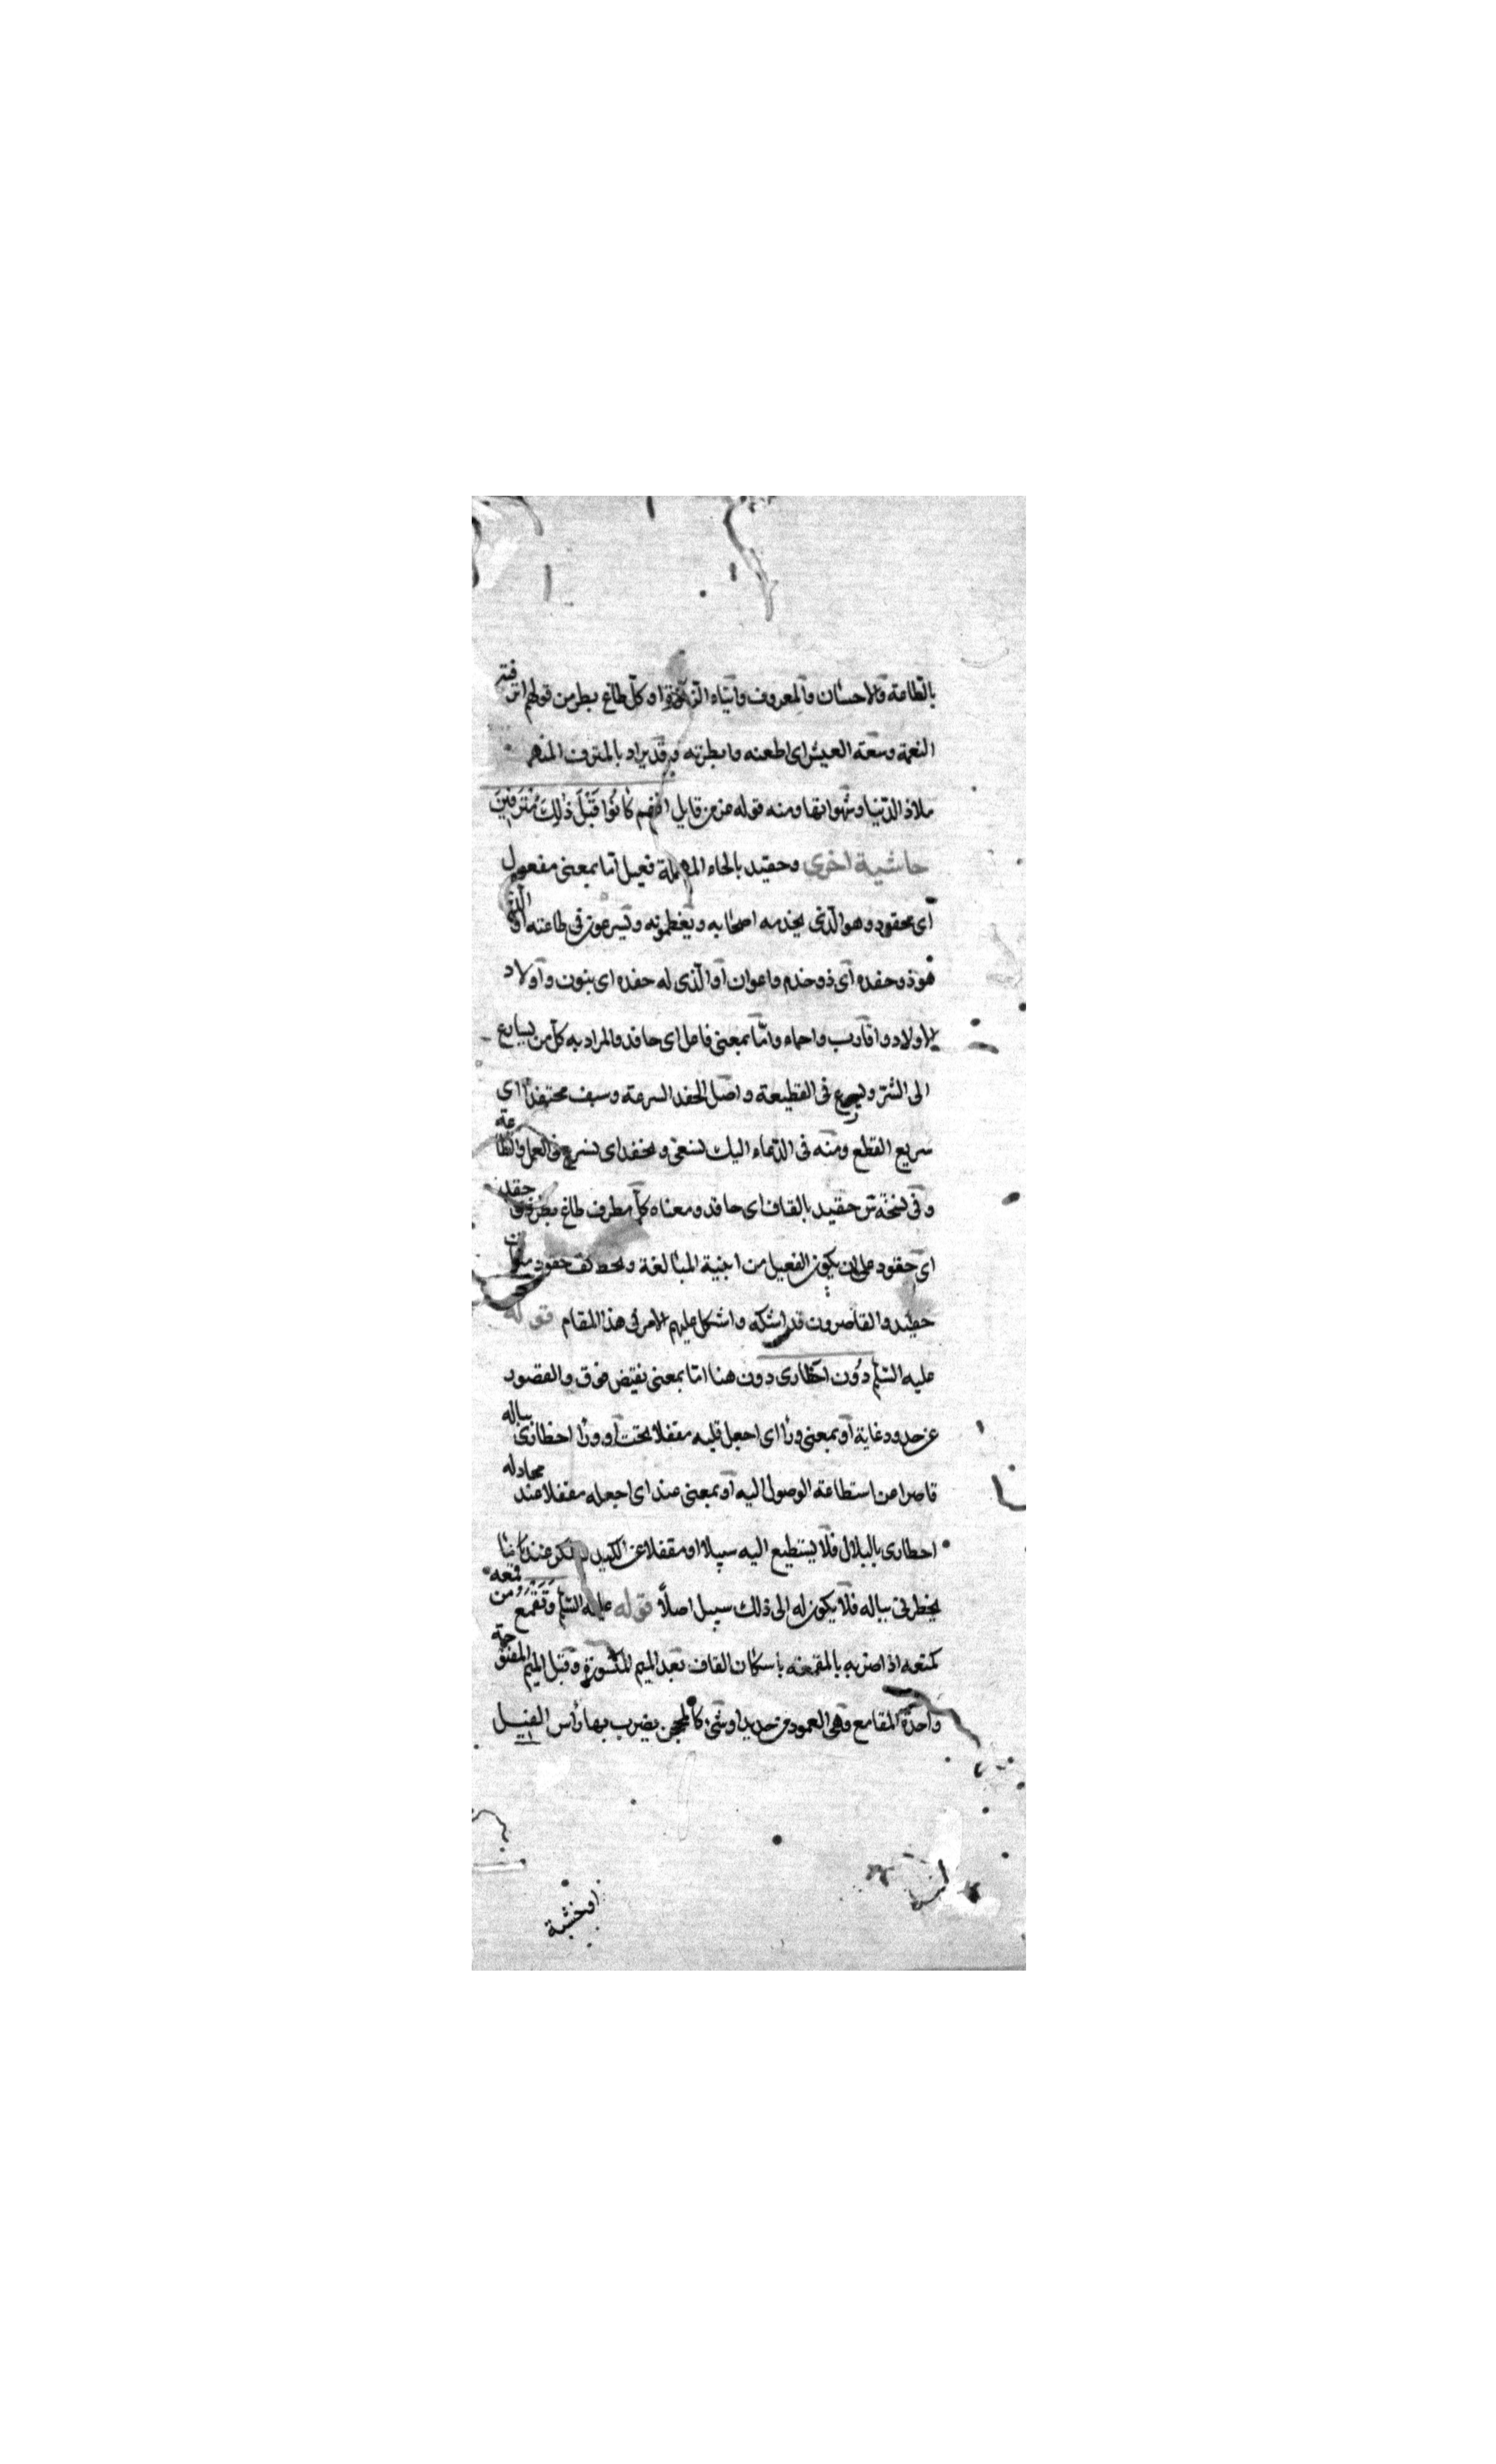 بالطاعة والاحسان والمعروف وايتاء الزكوة او كل طاغ بطر من قولهم اترفته
النعمة وسعة العيش اى اطغته وابطرته وقد يراد بالمترف المنهمك
ملاذ الدنيا وشهواتها ومنه قوله عز من قايل انهم كَانُوا قَبْلَ ذٰلِكَ مُتْرَفِينَ
حاشية اخرى وحفيد بالحاء المهملة فعيل اما بمعنى مفعول
اى محفود وهو الذى يخدمه اصحابه ويعظمونه ويسرعون فى طاعته او الذى
هو ذو حفده اى ذو خدم واعوان او الذى له حفده اى بنون و اولاد
الاولاد واقارب واحماء واما بمعنى فاعل اى حافد والمراد به كل من يسارع
الى الشر ويسرع فى القطيعة واصل الحفد السرعة وسيف محتفد اى
سريع القطع ومنه فى الدعاء اليك نسعى ونحفد اى نسرع فى العمل والطاعة
وفى نسخة ش حقيد بالقاف اى حاقد ومعناه كل مطرف طاغ حقد
اى حقود على ان يكون الفعيل من ابنية المبالغة وبخط كف حقود مكان
حفيد والقاصرون قد اشكل عليهم الامر فى هذا المقام قوله
عليه السلم دُون اخطارى دون هنا اما بمعنى نقيض فوق والمقصود
عن حدود غاية او بمعنى ورا اى اجعل قلبه مقفلا تحت او ورا اخطارى بباله
قاصرا عن استطاعة الوصول اليه او بمعنى عند اى اجعله مقفلا عند محادله
اخطارى بالبال فلا يستطيع اليه سبيلا او مقفلا عن الكيد
يخطر فى باله فلا يكون له الى ذلك سبيل اصلاً قوله عليه السلم وَتَقْمَعَ ومن قمعه
كمنعه اذا ضربه بالمقمعة باسكان القاف بعد الميم المكسورة وقبل الميم المفتوحة
واحدة المقامع وهى العمود من حديد او شئ كالمحجن يضرب بها رأس الفيل
او خشبة